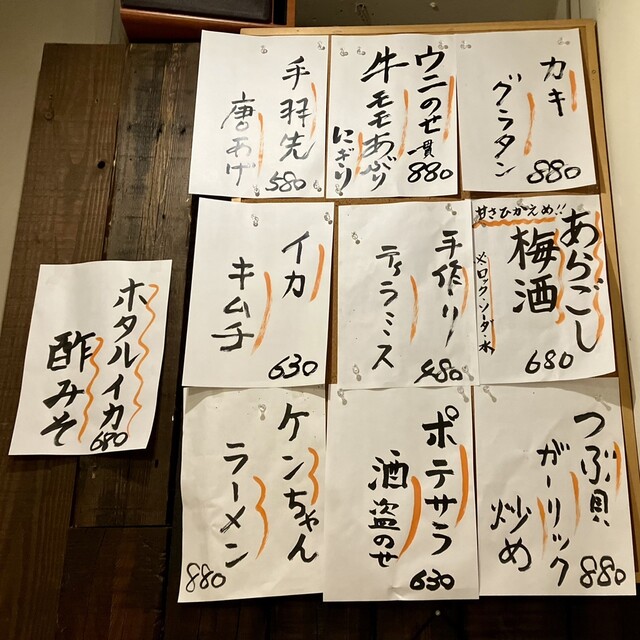 カキ
グラタン
880
ウニのせ
牛モモあぶり
にぎり
一貫
880
手羽先
唐あげ
580
甘さひかえめ!!
あらごし
梅酒
※ロック・ソーダ・水
680
手作り
ティラミス
480
イカ
キムチ
630
ホタルイカ
酢みそ
680
つぶ貝
ガーリック
炒め
880
ポテサラ
酒盗のせ
630
ケンちゃん
ラーメン
880